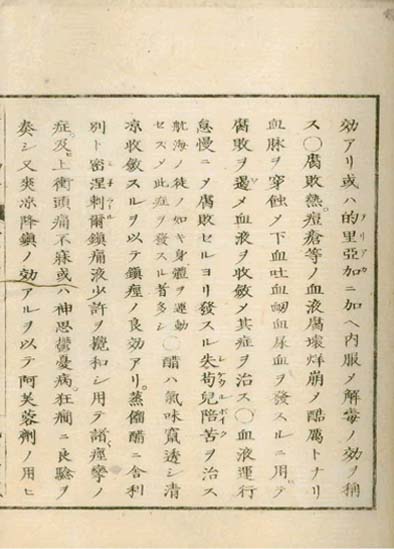 効アリ或ハ的里亞加ニ加ヘ内服メ解毒ノ効ヲ稱
ス〇腐敗熱。痘瘡等ノ血液腐壊烊崩メ酷厲トナリ
血脉ヲ穿蝕メ下血吐血衂血尿血ヲ發スルニ用テ
腐敗ヲ遏メ血液ヲ收斂メ其症ヲ治ス〇血液運行
怠慢ニメ腐敗セルヨリ發スル失苟兒陪苦ヲ治ス
航海ノ徒ノ如キ身體ヲ運動セスメ此症ヲ發スル者多シ〇醋ハ氣味竄透シ清
凉收斂スルヲ以テ鎮痙ノ良効アリ。蒸餾醋ニ舎利
別ト密涅剌爾鎮痛液少許ヲ攪和シ用テ諸痙攣ノ
症。及上衝頭痛不寐或ハ神思鬱憂病。狂癇ニ良驗ヲ
奏シ又爽凉降鎮ノ効アルヲ以テ阿芙蓉劑ノ用ヒ